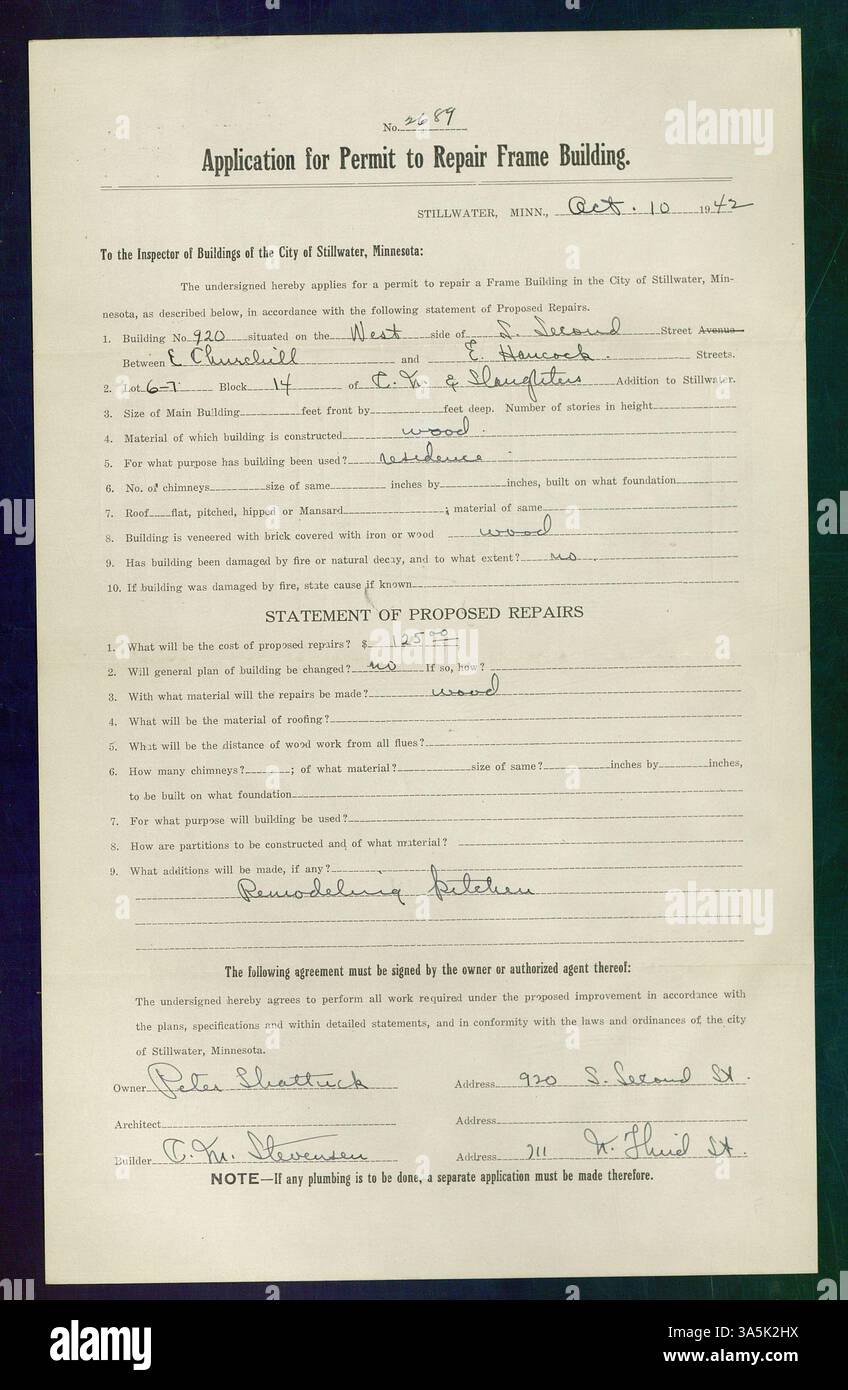 No. 2689
Application for Permit to Repair Frame Building.
STILLWATER, MINN., Oct. 10 1942
To the Inspector of Buildings of the City of Stillwater, Minnesota:
The undersigned hereby applies for a permit to repair a Frame Building in the City of Stillwater, Min-
nesota, as described below, in accordance with the following statement of Proposed Repairs.
1. Building No. 920 situated on the West side of S. Second Street Avenue
Between E Churchill and E. Hancock. Streets.
2. Lot 6-7 Block 14 of C. M. & Slaughters Addition to Stillwater.
3. Size of Main Building feet front by feet deep. Number of stories in height
4. Material of which building is constructed wood.
5. For what purpose has building been used? residence
6. No. of chimneys size of same inches by inches, built on what foundation
7. Roof flat, pitched, hipped or Mansard ; material of same
8. Building is veneered with brick covered with iron or wood wood
9. Has building been damaged by fire or natural decay, and to what extent? no.
10. If building was damaged by fire, state cause if known
STATEMENT OF PROPOSED REPAIRS
1. What will be the cost of proposed repairs? $ 125 00
2. Will general plan of building be changed? no If so, how?
3. With what material will the repairs be made? wood
4. What will be the material of roofing?
5. What will be the distance of wood work from all flues?
6. How many chimneys? ; of what material? size of same? inches by inches,
to be built on what foundation
7. For what purpose will building be used?
8. How are partitions to be constructed and of what material?
9. What additions will be made, if any?
Remodeling kitchen
The following agreement must be signed by the owner or authorized agent thereof:
The undersigned hereby agrees to perform all work required under the proposed improvement in accordance with
the plans, specifications and within detailed statements, and in conformity with the laws and ordinances of the city
of Stillwater, Minnesota.
Owner Peter Shattuck Address 920 S. Second St.
Architect Address
Builder C. M. Stevensen Address 711 W. Third St.
NOTE—If any plumbing is to be done, a separate application must be made therefore.
alamy
Image ID: A3A5K2HX
www.alamy.com